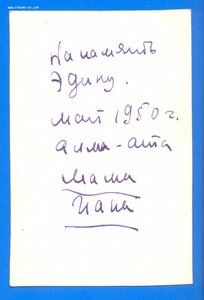 На память
Эдику.
Май 1950 г.
Алма-ата
Мама
Папа